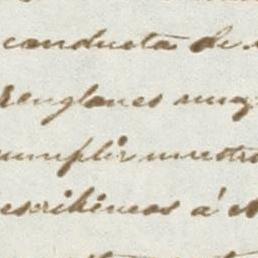 conducta de
renglones muy
cumplir nuestro
escribirnos á